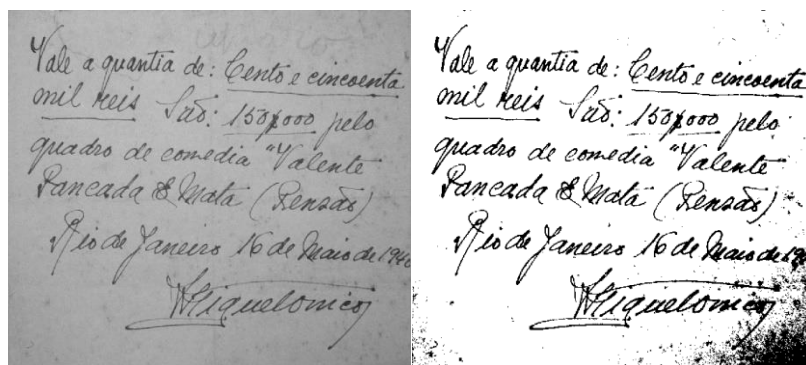 Vale a quantia de: Cento e cincoenta
mil reis São: 150$000 pelo
quadro de comedia "Valente
Pancada & Mata (Pensão)
Rio de Janeiro 16 de Maio de 194
Vale a quantia de: Cento e cincoenta
mil reis São: 150$000 pelo
quadro de comedia "Valente
Pancada & Mata (Pensão)
Rio de Janeiro 16 de Maio de 19